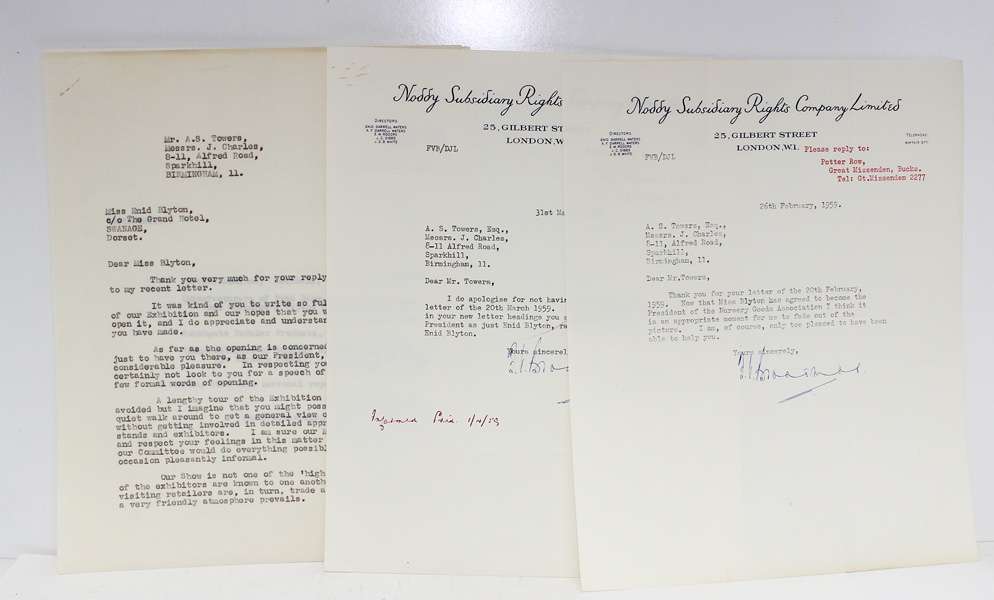 Mr. A.S. Towers,
Messrs. J. Charles,
8-11, Alfred Road,
Sparkhill,
BIRMINGHAM, 11.
Miss Enid Blyton,
c/o The Grand Hotel,
SWANAGE,
Dorset.
Dear Miss Blyton,
Thank you very much for your reply
to my recent letter.
It was kind of you to write so ful
of our Exhibition and our hopes that you w
open it, and I do appreciate and understan
you have made.
As far as the opening is concerned
just to have you there, as our President,
considerable pleasure. In respecting yo
certainly not look to you for a speech of
few formal words of opening.
A lengthy tour of the Exhibition
avoided but I imagine that you might poss
quiet walk around to get a general view o
without getting involved in detailed appr
stands and exhibitors. I am sure our M
and respect your feelings in this matter
our Committee would do everything possibl
occasion pleasantly informal.
Our Show is not one of the 'high
of the exhibitors are known to one anoth
visiting retailers are, in turn, trade a
a very friendly atmosphere prevails.
Noddy Subsidiary Rights
DIRECTORS
ENID DARRELL WATERS
K. F. DARRELL WATERS
E. W. ROGERS
J. C. GIBBS
J. G. B. WHITE
25, GILBERT ST
LONDON, W
FVB/DJL
31st Ma
A. S. Towers, Esq.,
Messrs. J. Charles,
8-11, Alfred Road,
Sparkhill,
Birmingham, 11.
Dear Mr. Towers,
I do apologise for not havin
letter of the 20th March 1959.
in your new letter headings you s
President as just Enid Blyton, ra
Enid Blyton.
Yours sincerel
Informed Prin. 1/4/59
Noddy Subsidiary Rights Company Limited
DIRECTORS
ENID DARRELL WATERS
K. F. DARRELL WATERS
E. W. ROGERS
J. C. GIBBS
J. G. B. WHITE
25, GILBERT STREET
LONDON, W.1.
TELEPHONE
FVB/DJL
Please reply to:
Potter Row,
Great Missenden, Bucks.
Tel: Gt.Missenden 2277
26th February, 1959.
A. S. Towers, Esq.,
Messrs. J. Charles,
8-11, Alfred Road,
Sparkhill,
Birmingham, 11.
Dear Mr.Towers,
Thank you for your letter of the 20th February,
1959. Now that Miss Blyton has agreed to become the
President of the Nursery Goods Association I think it
is an appropriate moment for me to fade out of the
picture. I am, of course, only too pleased to have been
able to help you.
Yours sincerely,